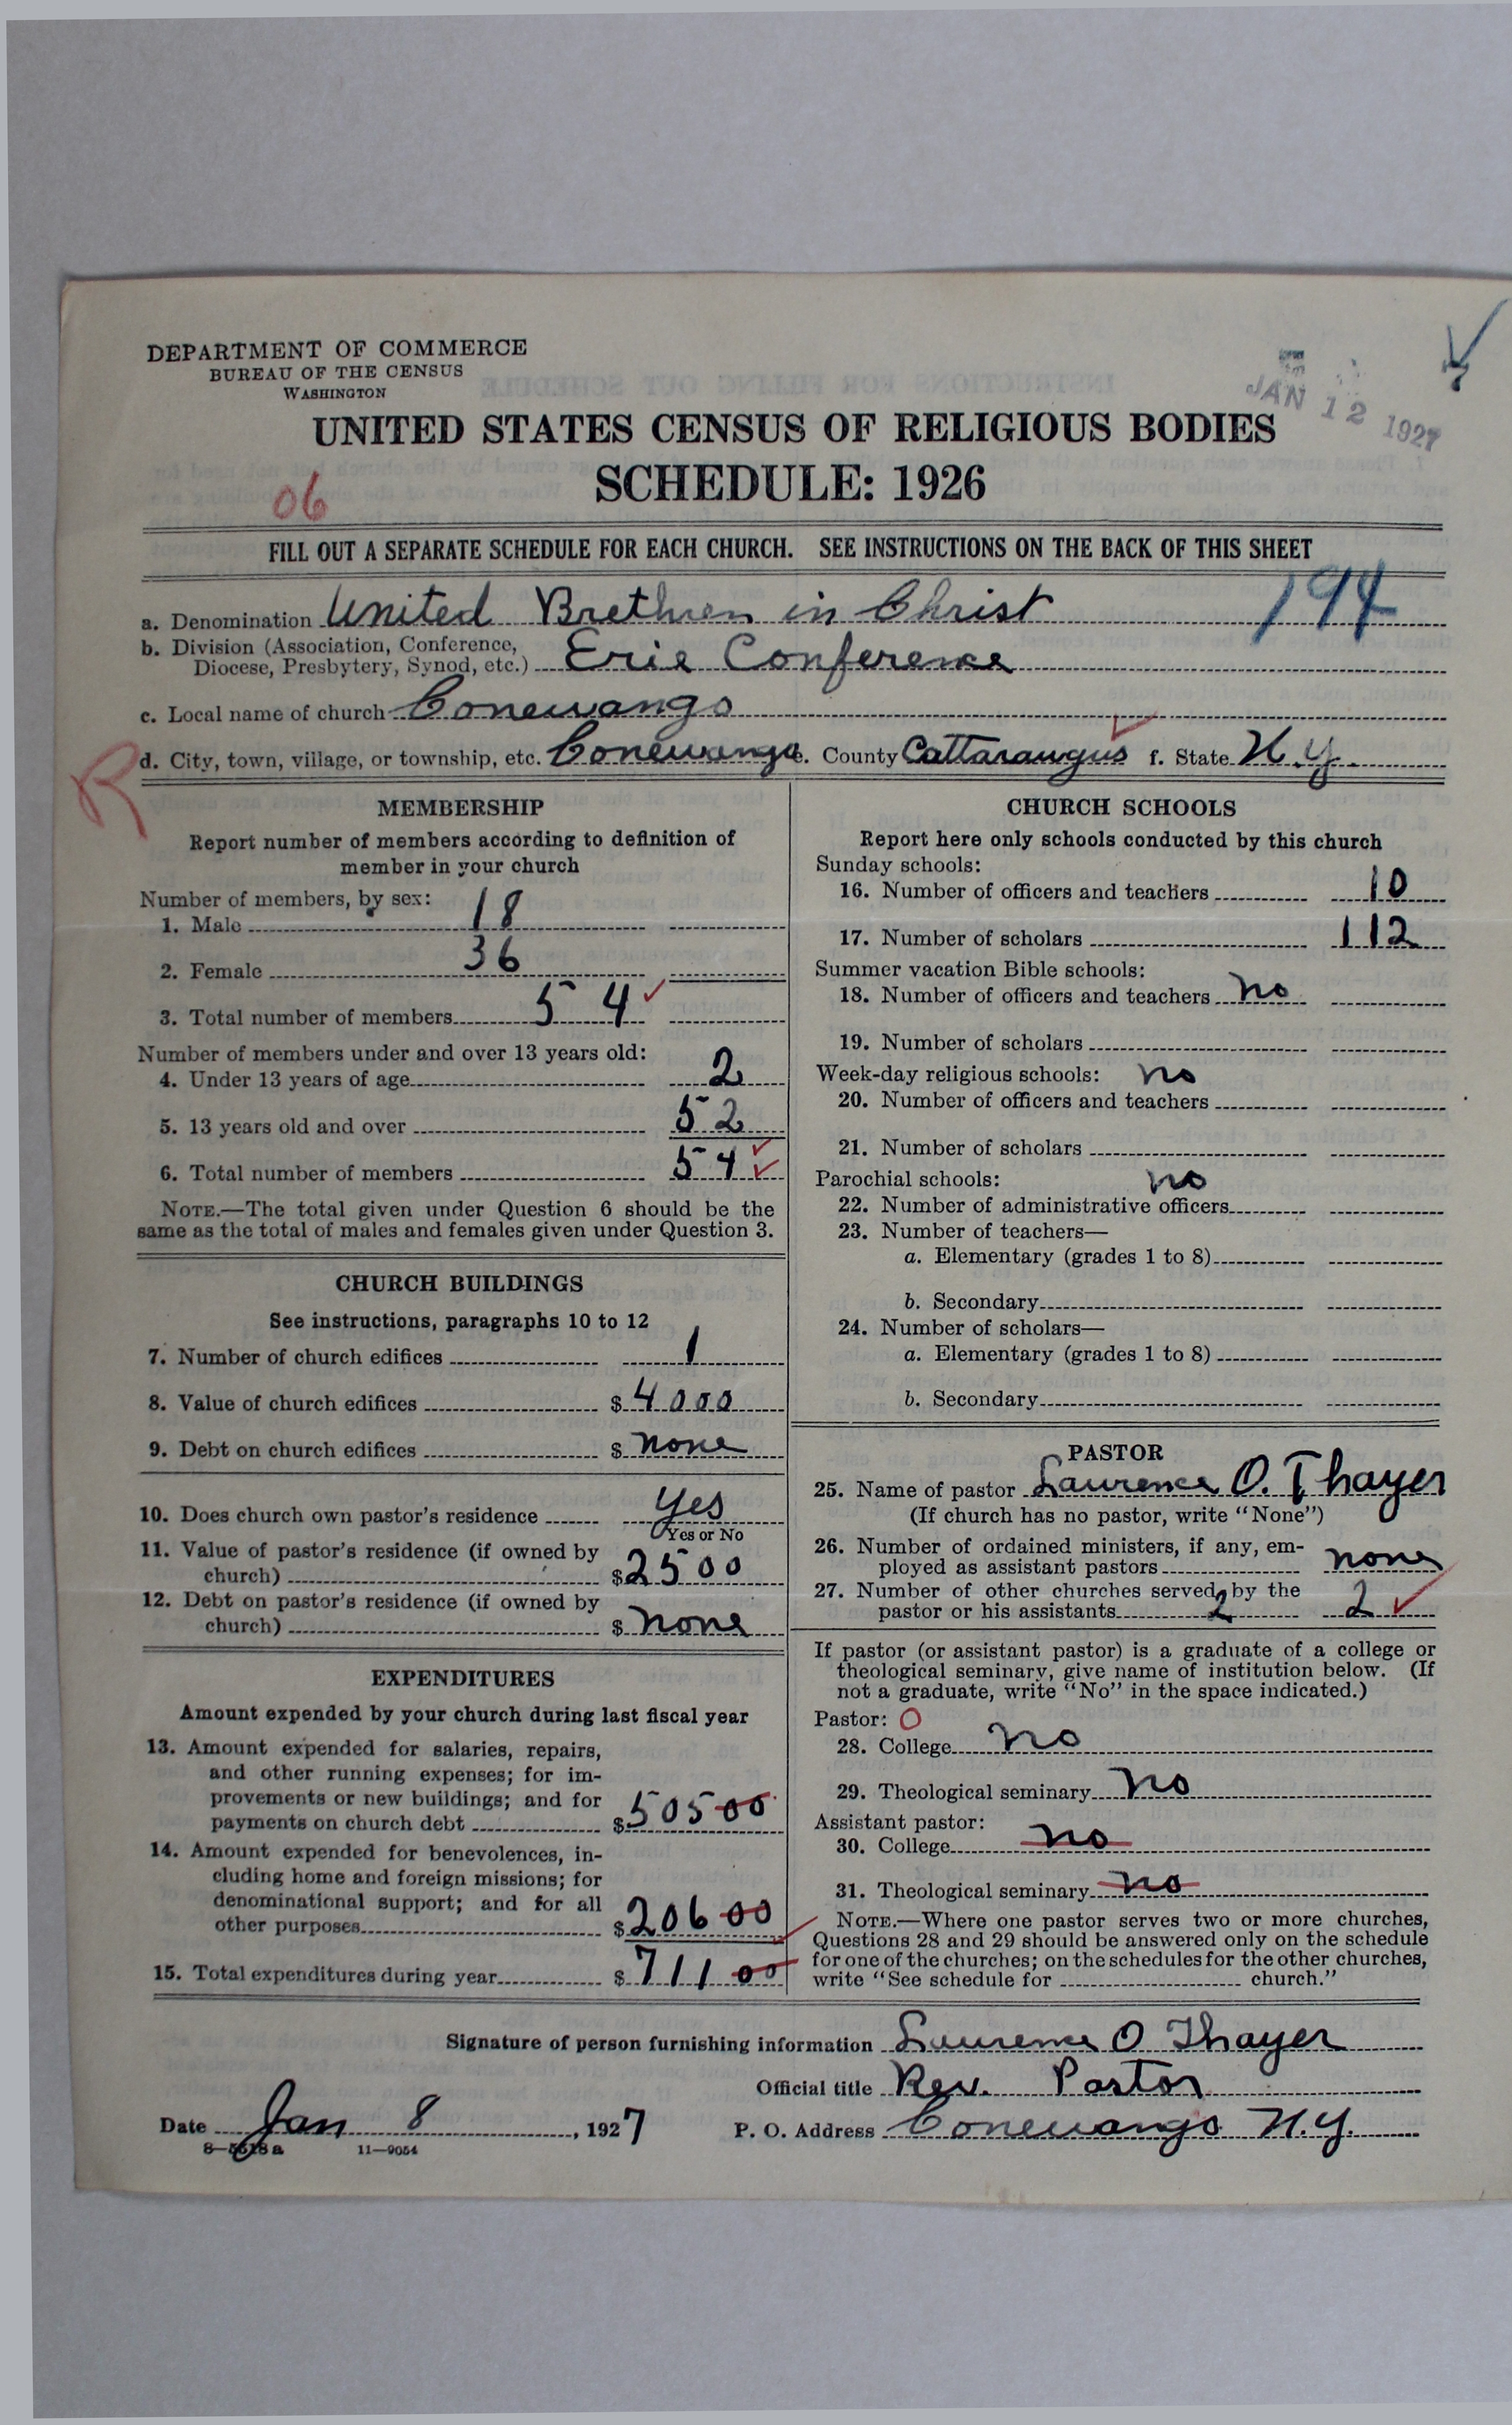 DEPARTMENT OF COMMERCE
BUREAU OF THE CENSUS
WASHINGTON
JAN 12 1927
UNITED STATES CENSUS OF RELIGIOUS BODIES
SCHEDULE: 1926
06
FILL OUT A SEPARATE SCHEDULE FOR EACH CHURCH. SEE INSTRUCTIONS ON THE BACK OF THIS SHEET
194
a. Denomination United Brethren in Christ
b. Division (Association, Conference,
Diocese, Presbytery, Synod, etc.) Erie Conference
c. Local name of church Conewango
R
d. City, town, village, or township, etc. Conewango e. County Cattaraugus f. State N.Y.
MEMBERSHIP
Report number of members according to definition of
member in your church
Number of members, by sex:
1. Male 18
2. Female 36
3. Total number of members 54
Number of members under and over 13 years old:
4. Under 13 years of age 2
5. 13 years old and over 52
6. Total number of members 54
NOTE.—The total given under Question 6 should be the
same as the total of males and females given under Question 3.
CHURCH BUILDINGS
See instructions, paragraphs 10 to 12
7. Number of church edifices 1
8. Value of church edifices $4000
9. Debt on church edifices $none
10. Does church own pastor's residence yes
Yes or No
11. Value of pastor's residence (if owned by
church) $2500
12. Debt on pastor's residence (if owned by
church) $none
EXPENDITURES
Amount expended by your church during last fiscal year
13. Amount expended for salaries, repairs,
and other running expenses; for im-
provements or new buildings; and for
payments on church debt $50500
14. Amount expended for benevolences, in-
cluding home and foreign missions; for
denominational support; and for all
other purposes $20600
15. Total expenditures during year $71100
CHURCH SCHOOLS
Report here only schools conducted by this church
Sunday schools:
16. Number of officers and teachers 10
17. Number of scholars 112
Summer vacation Bible schools:
18. Number of officers and teachers no
19. Number of scholars
Week-day religious schools: no
20. Number of officers and teachers
21. Number of scholars
Parochial schools: no
22. Number of administrative officers
23. Number of teachers—
a. Elementary (grades 1 to 8)
b. Secondary
24. Number of scholars—
a. Elementary (grades 1 to 8)
b. Secondary
PASTOR
25. Name of pastor Laurence O. Thayer
(If church has no pastor, write "None")
26. Number of ordained ministers, if any, em-
ployed as assistant pastors none
27. Number of other churches served by the
pastor or his assistants 2 2
If pastor (or assistant pastor) is a graduate of a college or
theological seminary, give name of institution below. (If
not a graduate, write "No" in the space indicated.)
Pastor: O
28. College no
29. Theological seminary no
Assistant pastor:
30. College no
31. Theological seminary no
NOTE.—Where one pastor serves two or more churches,
Questions 28 and 29 should be answered only on the schedule
for one of the churches; on the schedules for the other churches,
write "See schedule for church."
Signature of person furnishing information Laurence O Thayer
Official title Rev. Pastor
Date Jan 8, 1927 P. O. Address Conewango N.Y.
8—5518a 11—9054